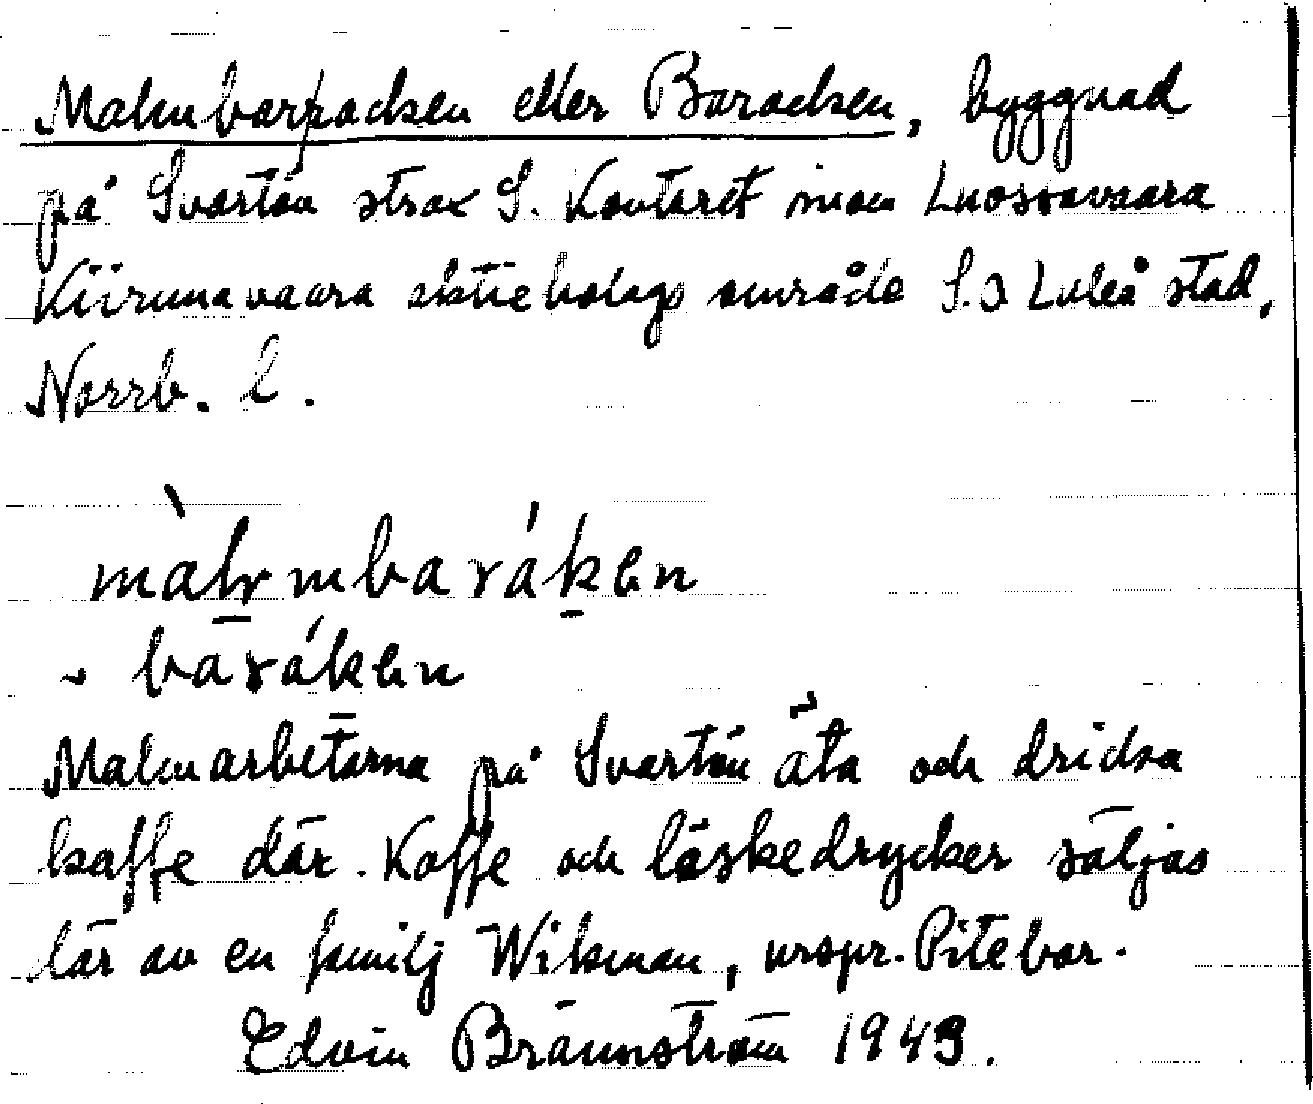 Malmbarracken eller Baracken, byggnad
på Svartön strax S. Kontoret inom Luossavaara
Kiirunavaara aktiebolags område S.O Luleå stad,
Norrb. l.
màlmbaráken
baráken
Malmarbetarna på Svartön äta och dricka
kaffe där. Kaffe och läskedrycker säljas
där av en familj Wikman, urspr. Pitebor.
Edvin Brännström 1943.